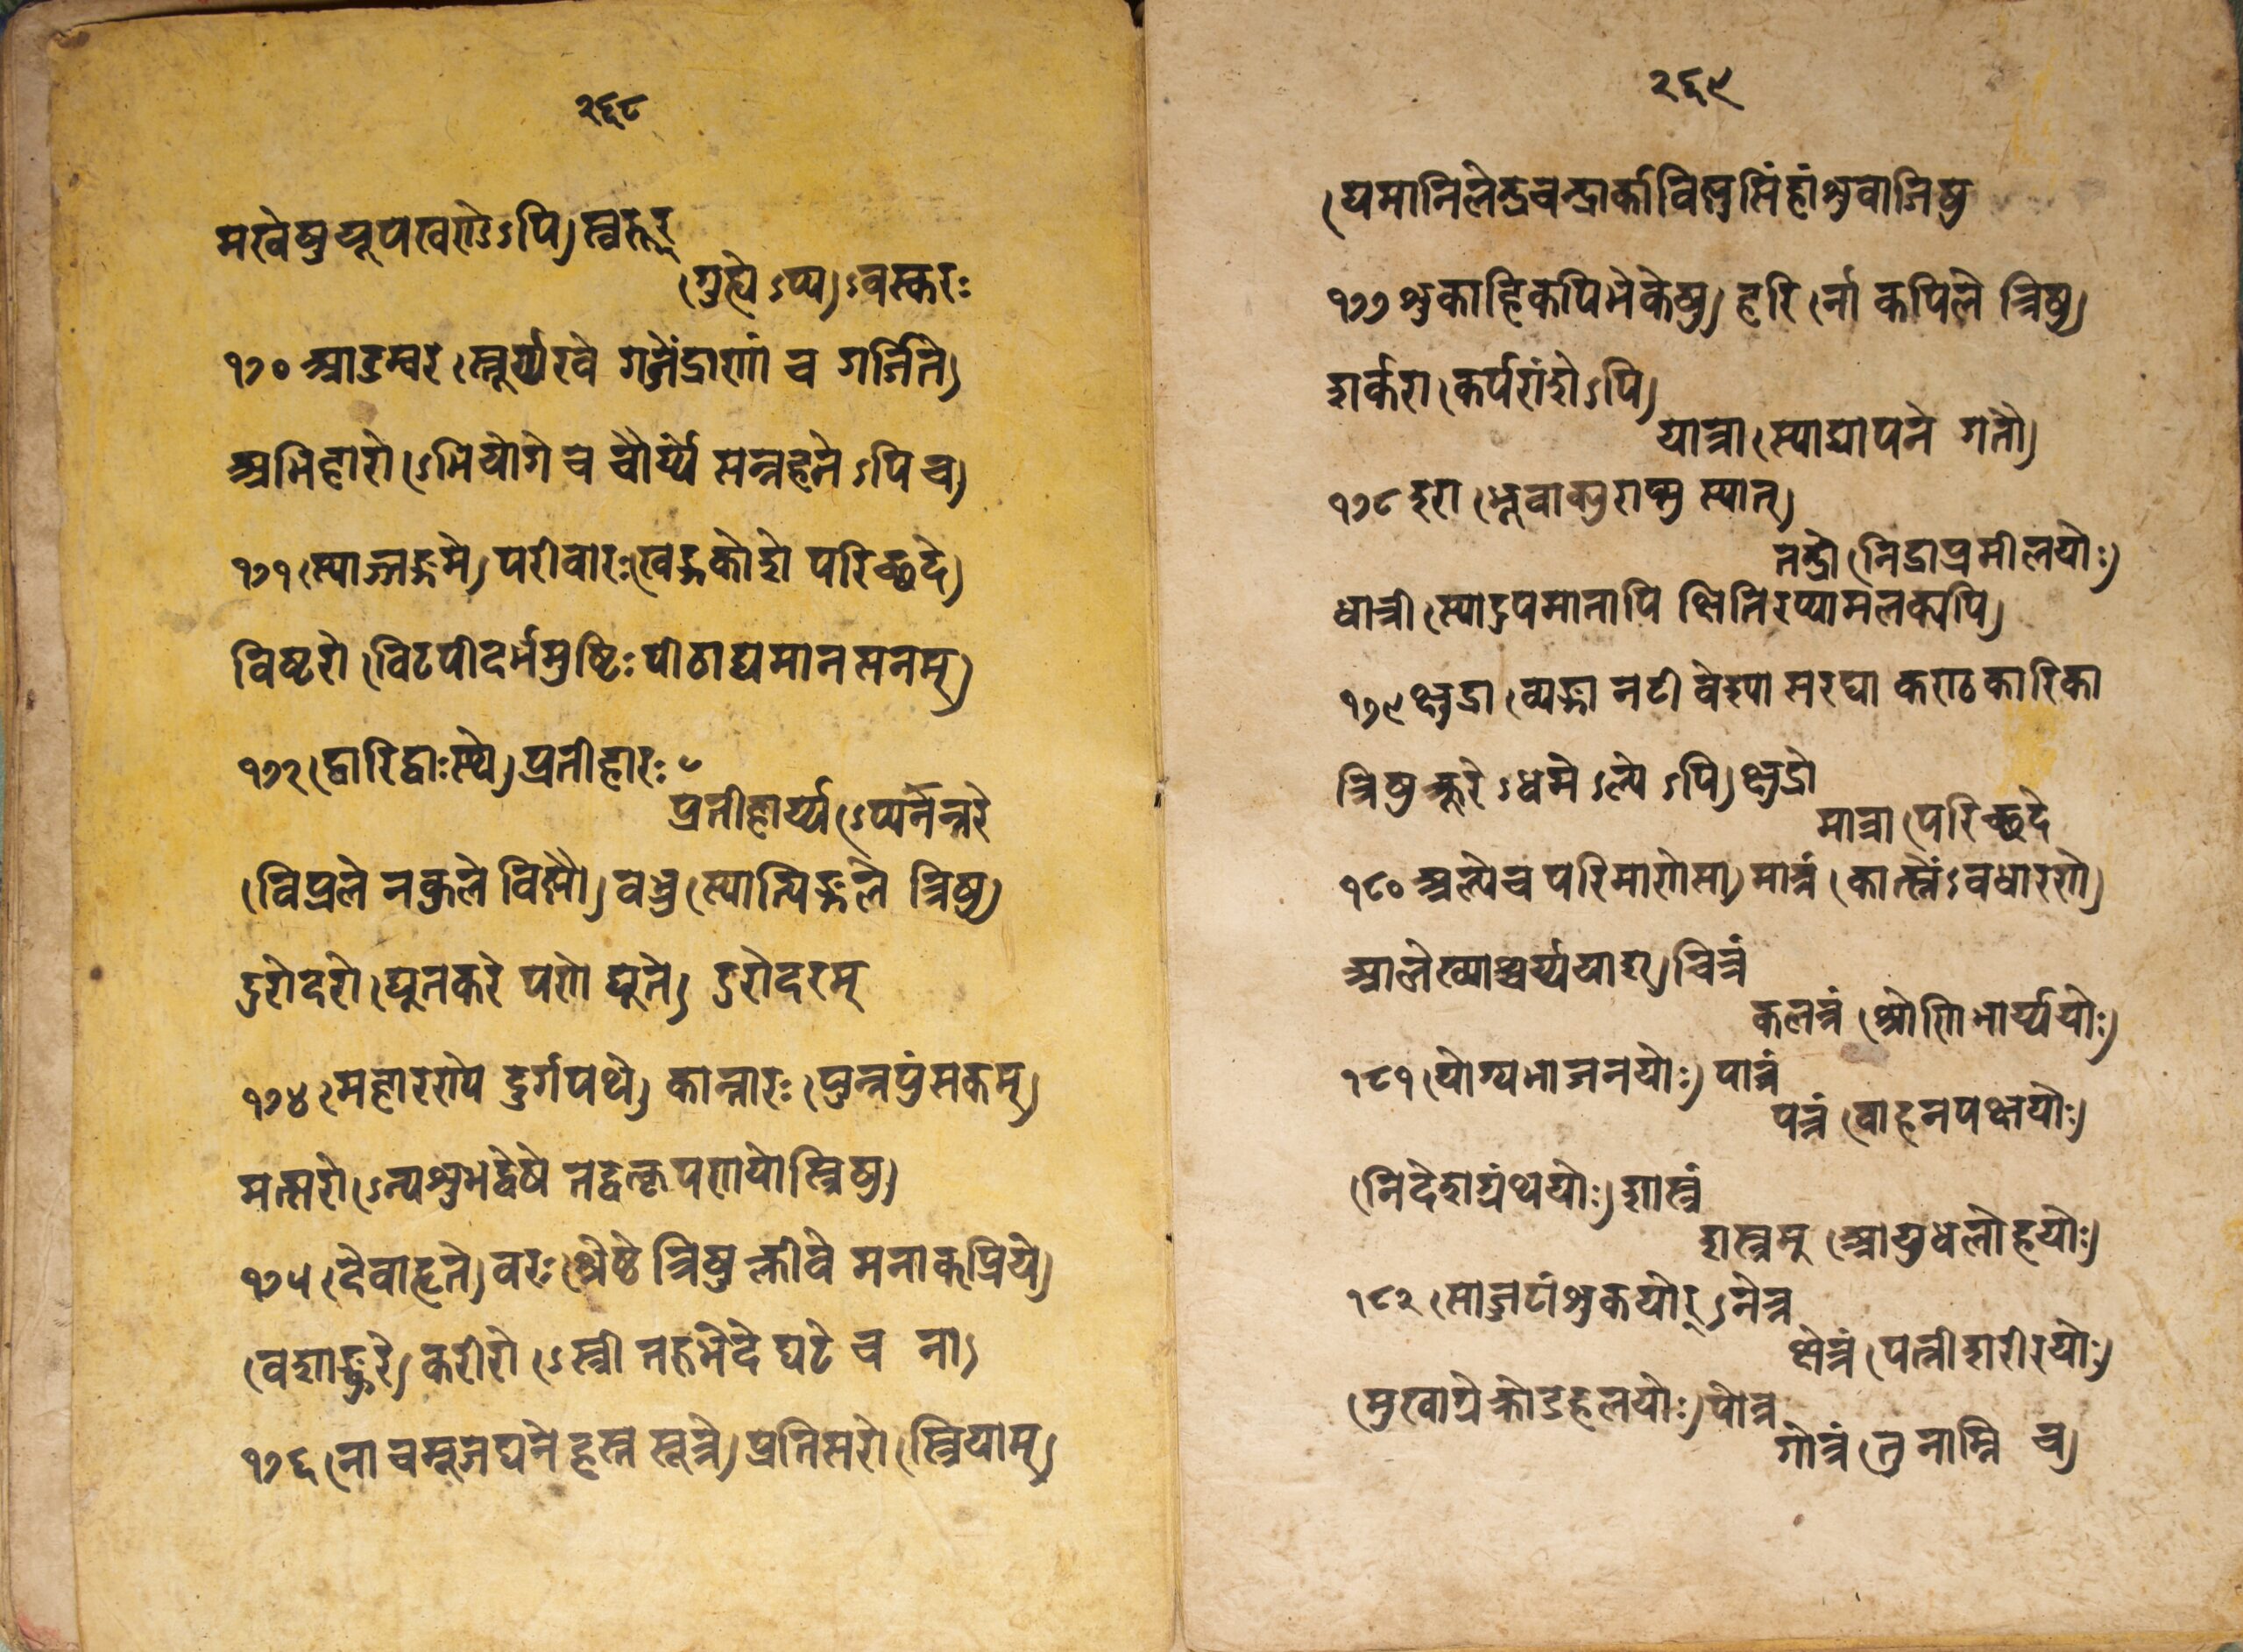 २६८
मखेषु यूपखण्डेऽपि) स्वरुर्
(गुह्येऽप्य)ऽवस्करः
१७० आडम्बर (स्तूर्य्यरवे गजेंद्राणां च गर्जिते)
अभिहारो (ऽभियोगे च चौर्य्ये सन्नहनेऽपि च)
१७१ (स्याज्जङ्गमे) परीवारः (खड्गकोशे परिच्छदे)
विष्टरो (विटपी दर्भमुष्टिः पीठाद्यमानसनम्)
१७२ (द्वारि द्वाःस्थे) प्रतीहारः
प्रतीहार्य्य (ऽप्यनन्तरे
(विपुले नकुले विष्णौ) बभ्रु (स्यात्पिङ्गले त्रिषु)
दुरोदरो (द्यूतकरे पणे द्यूते) दुरोदरम्
१७४ (महारण्ये दुर्गपथे) कान्तारः (पुन्नपुंसकम्)
मत्सरो (ऽन्यशुभद्वेषे तद्वत्कृपणयोस्त्रिषु)
१७५ (देवाद्वृते) वरः (श्रेष्ठे त्रिषु क्लीवे मनाक्प्रिये)
(वंशाङ्कुरे) करीरो (ऽस्त्री तरुभेदे घटे च ना)
१७६ (ना चमूजघने हस्तसूत्रे) प्रतिसरो (स्त्रियाम्)
२६९
(यमानिलेन्द्रचन्द्रार्कविष्णुसिंहांशुवाजिषु
१७७ शुकाहिकपिभेकेषु) हरि (र्ना कपिले त्रिषु)
शर्करा (कर्परांशेऽपि)
यात्रा (स्याद्यापने गतौ)
१७८ इरा (भूवाक्सुराप्सु स्यात्)
तन्द्री (निद्राप्रमीलयोः)
धात्री (स्यादुपमातापि क्षितिरप्यामलक्यपि)
१७९ क्षुद्रा (व्यङ्गा नटी वेश्या सरघा कण्टकारिका
त्रिषु क्रूरेऽधमेऽल्पेऽपि) क्षुद्रो
मात्रा (परिच्छदे
१८० अल्पे च परिमाणे सा) मात्रं (कार्त्स्न्येऽवधारणे)
आलेख्याश्चर्य्ययोश्) चित्रं
कलत्रं (श्रोणिभार्य्ययोः)
१८१ (योग्यभाजनयोः) पात्रं
पत्रं (वाहनपक्षयोः)
(निदेशग्रंथयोः) शास्त्रं
शस्त्रम् (आयुधलोहयोः)
१८२ (स्याज्जटांशुकयोर्)ऽनेत्र
क्षेत्रं (पत्नीशरीरयोः)
(मुखाग्रे क्रोडहलयोः) पोत्र
गोत्रं (तु नाम्नि च)